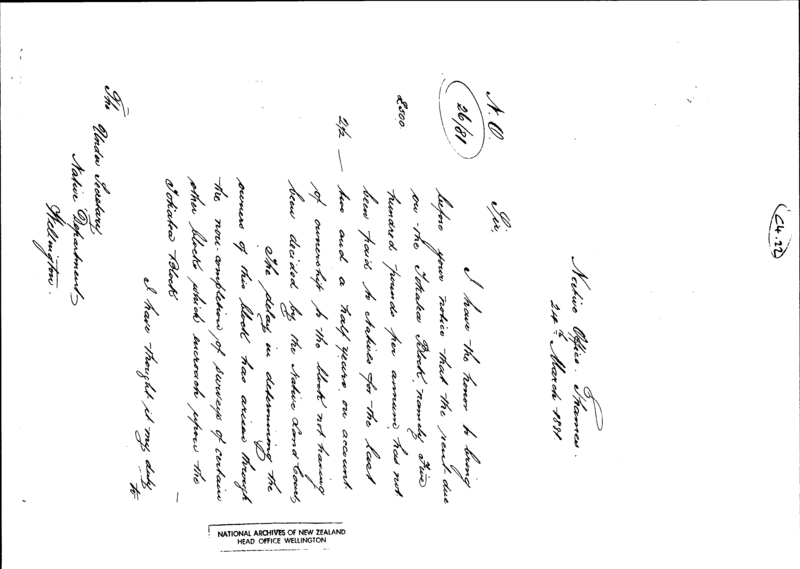 C4.22
Native Office. Thames.
24th March 1881
N.O.
26/81
Sir,
I have the honor to bring
before your notice that the rent due
on the Tokatea Block, namely Five
£500. hundred pounds per annum has not
been paid to Natives for the last
2½ — two and a half years on account
of ownership to the block not having
been decided by the Native Land Court,
The delay in determining the
owners of this block has arisen through
the non-completion of surveys of certain
other blocks which encroach upon the
Tokatea Block —
I have thought it my duty
to
The Under Secretary
Native Department,
Wellington.
NATIONAL ARCHIVES OF NEW ZEALAND
HEAD OFFICE WELLINGTON